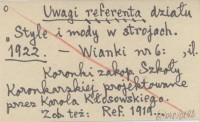 Uwagi referenta działu
Style i mody w strojach.
1922. - Wianki nr 6: , il.
Koronki zakop. Szkoły
Koronkarskiej projektowane
przez Karola Kłosowskiego.
Zob. też: Ref. 1919...